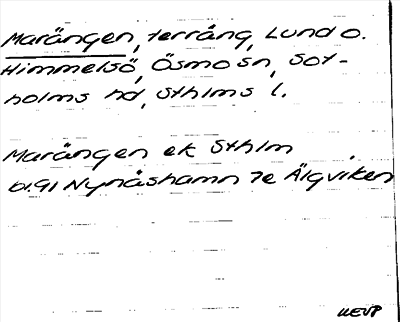 Marängen, terräng, Lund o.
Himmelsö, Ösmo sn, Sot-
holms hd, Sthlms l.
Marängen ek Sthlm
bl.91 Nynäshamn 7e Älgviken